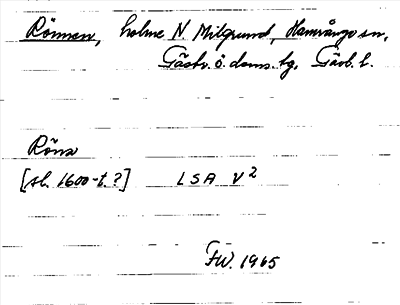 Rönnen, holme N. Milgrund, Hamrånge sn,
Gästr. ö. doms. tg, Gävl. l.
Röns
[sl. 1600-t.?] LSA V2
FW. 1965